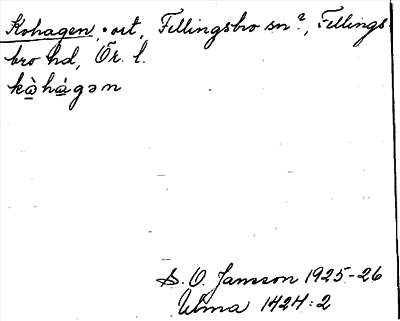 Kohagen, ort, Fellingsbro sn?, Fellings-
bro hd, Ör. l.
kàhágən
S. O. Jansson 1925-26
Ulma 1424:2